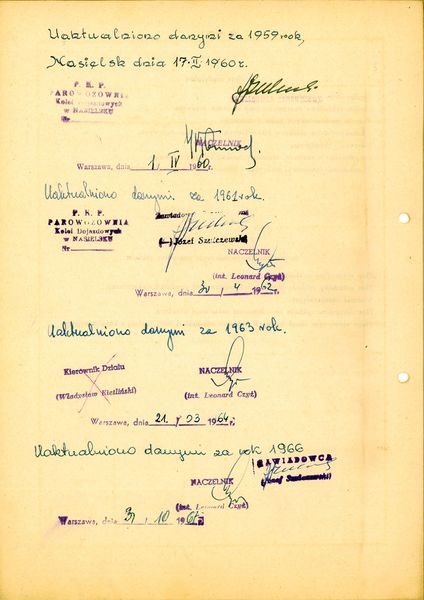 Uaktualniono danymi za 1959 rok,
Nasielsk dnia 17.II 1960r.
P. K. P.
PAROWOZOWNIA
Kolei Dojazdowych
w NASIELSKU
Nr
NACZELNIK
Warszawa, dnia 1 / IV 1960.
Uaktualniono danymi za 1961 rok.
P. K. P.
PAROWOZOWNIA
Kolei Dojazdowych
w NASIELSKU
Nr
Zawiadowca
(—) Józef Szulczewski
NACZELNIK
(inż. Leonard Czyż)
Warszawa, dnia 30 / 4 1962
Uaktualniono danymi za 1963 rok.
Kierownik Działu
NACZELNIK
(Władysław Kieźliński)
(inż. Leonard Czyż)
Warszawa, dnia 21. / 03 1964 r.
Uaktualniono danymi za rok 1966
ZAWIADOWCA
(Józef Szulczewski)
NACZELNIK
(inż. Leonard Czyż)
Warszawa, dnia 31 / 10 196